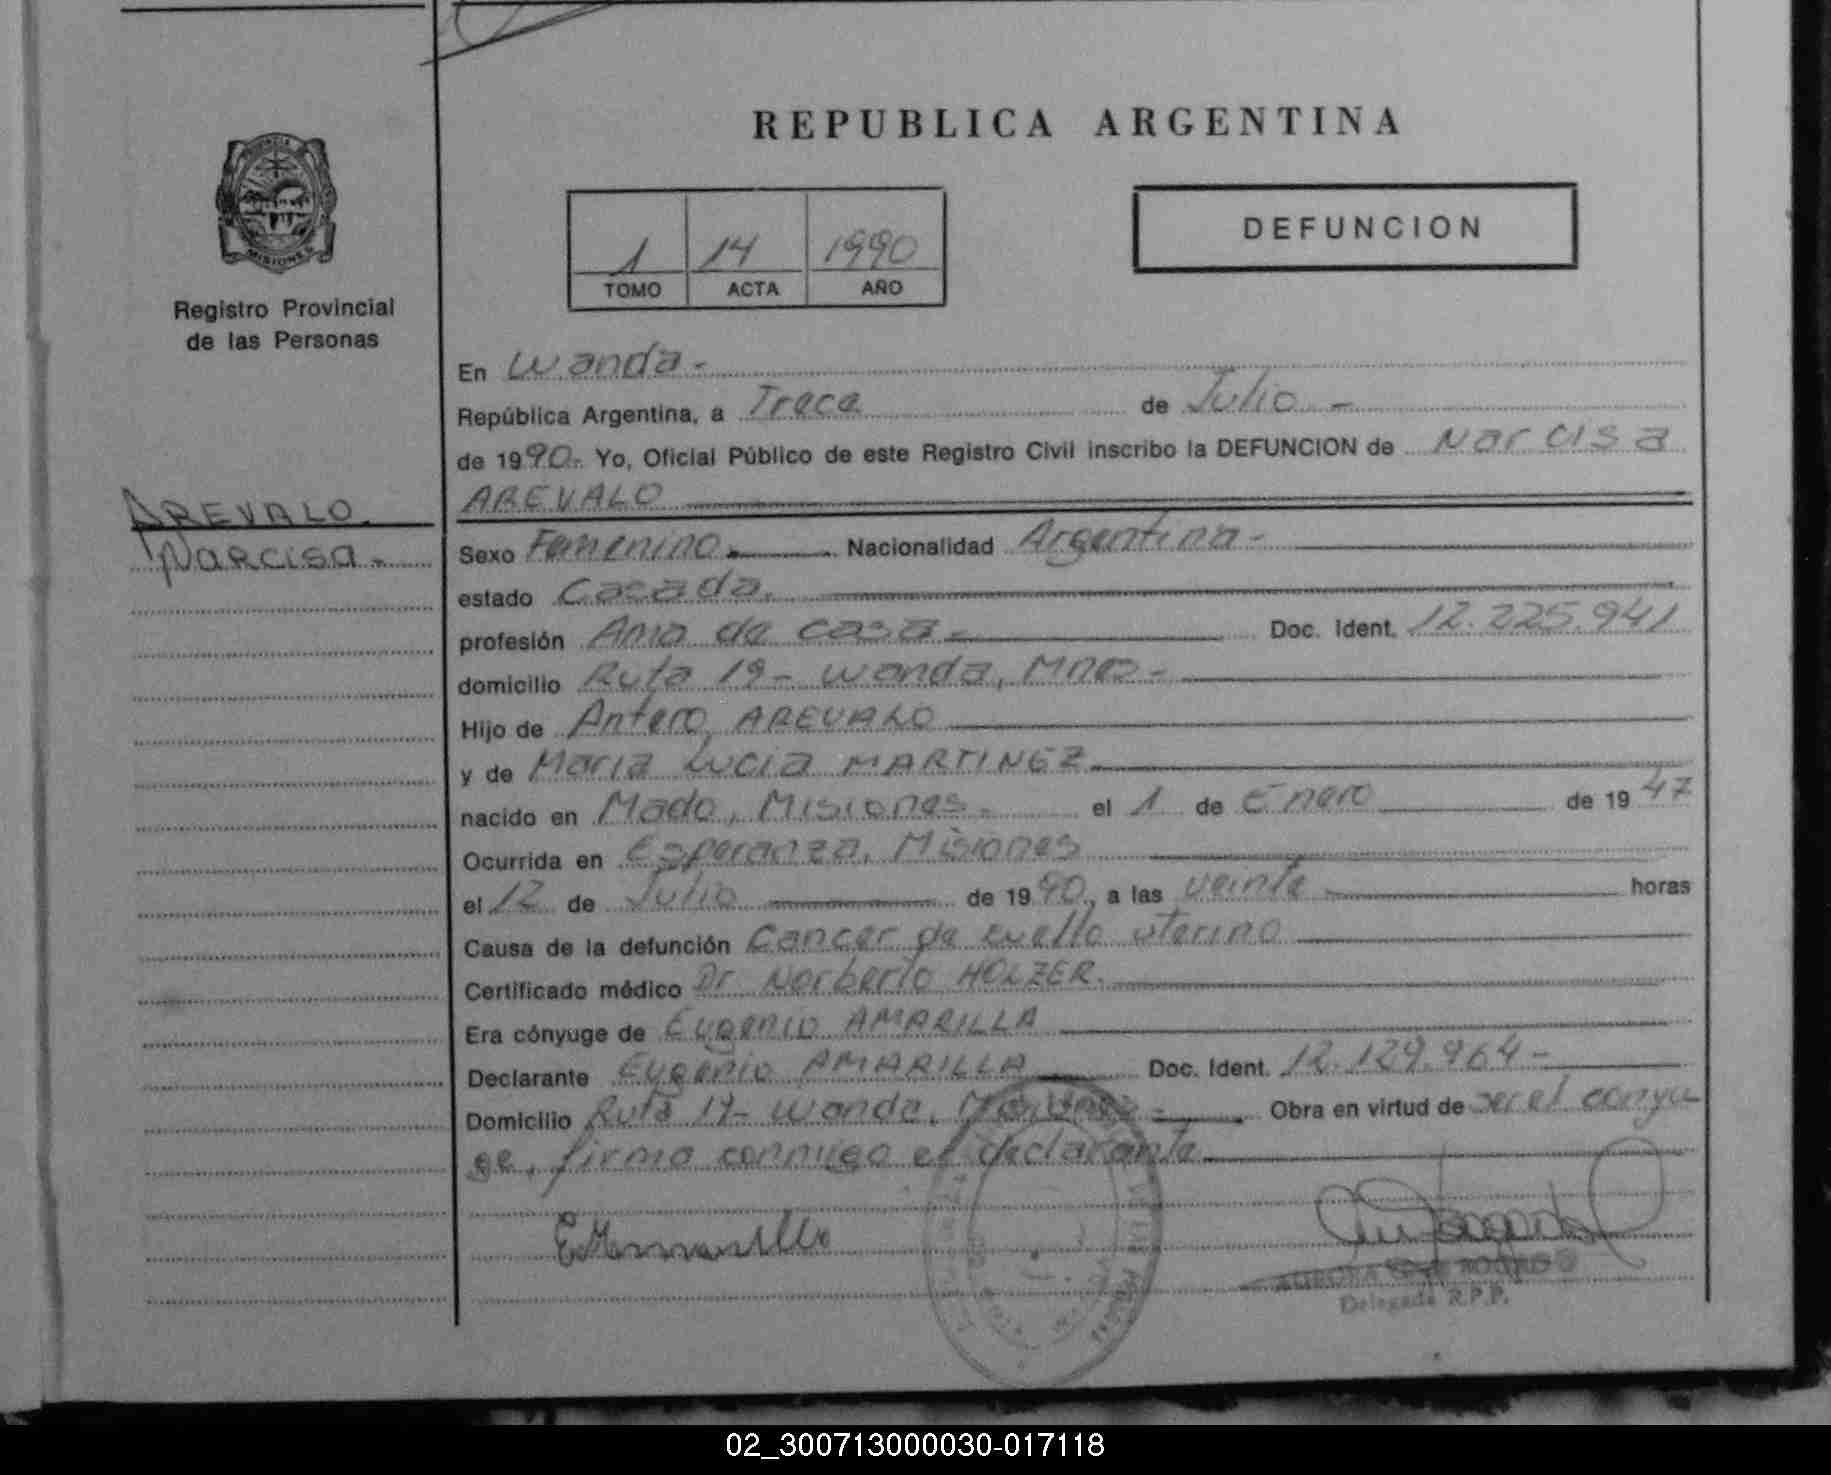 REPUBLICA ARGENTINA
PROVINCIA
MISIONES
Registro Provincial
de las Personas
1 14 1990
TOMO ACTA AÑO
DEFUNCION
En Wanda-
República Argentina, a Trece de Julio -
de 1990.- Yo, Oficial Público de este Registro Civil inscribo la DEFUNCION de Narcisa
AREVALO
AREVALO.
Narcisa.-
Sexo Femenino. Nacionalidad Argentina-
estado Casada.
profesión Ama de casa- Doc. Ident. 12.225.941
domicilio Ruta 19- Wanda, Mnes-
Hijo de Antero AREVALO
y de Maria Lucia MARTINEZ
nacido en Mado, Misiones.- el 1 de Enero de 1947
Ocurrida en Esperanza, Misiones
el 12 de Julio de 1990, a las veinte horas
Causa de la defunción Cancer de cuello uterino
Certificado médico Dr Norberto HOLZER.
Era cónyuge de Eugenio AMARILLA
Declarante Eugenio AMARILLA Doc. Ident. 12.129.964-
Domicilio Ruta 19- Wanda, Misiones- Obra en virtud de ser el conyu
ge, firma conmigo el declarante
EAmarilla
AURORA
Delegada R.P.P.
02_300713000030-017118